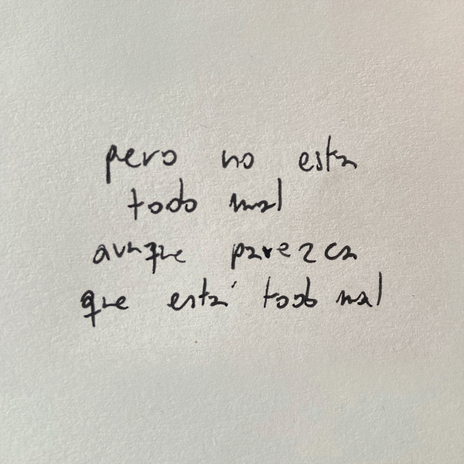 pero no esta
todo mal
aunque parezca
que está todo mal